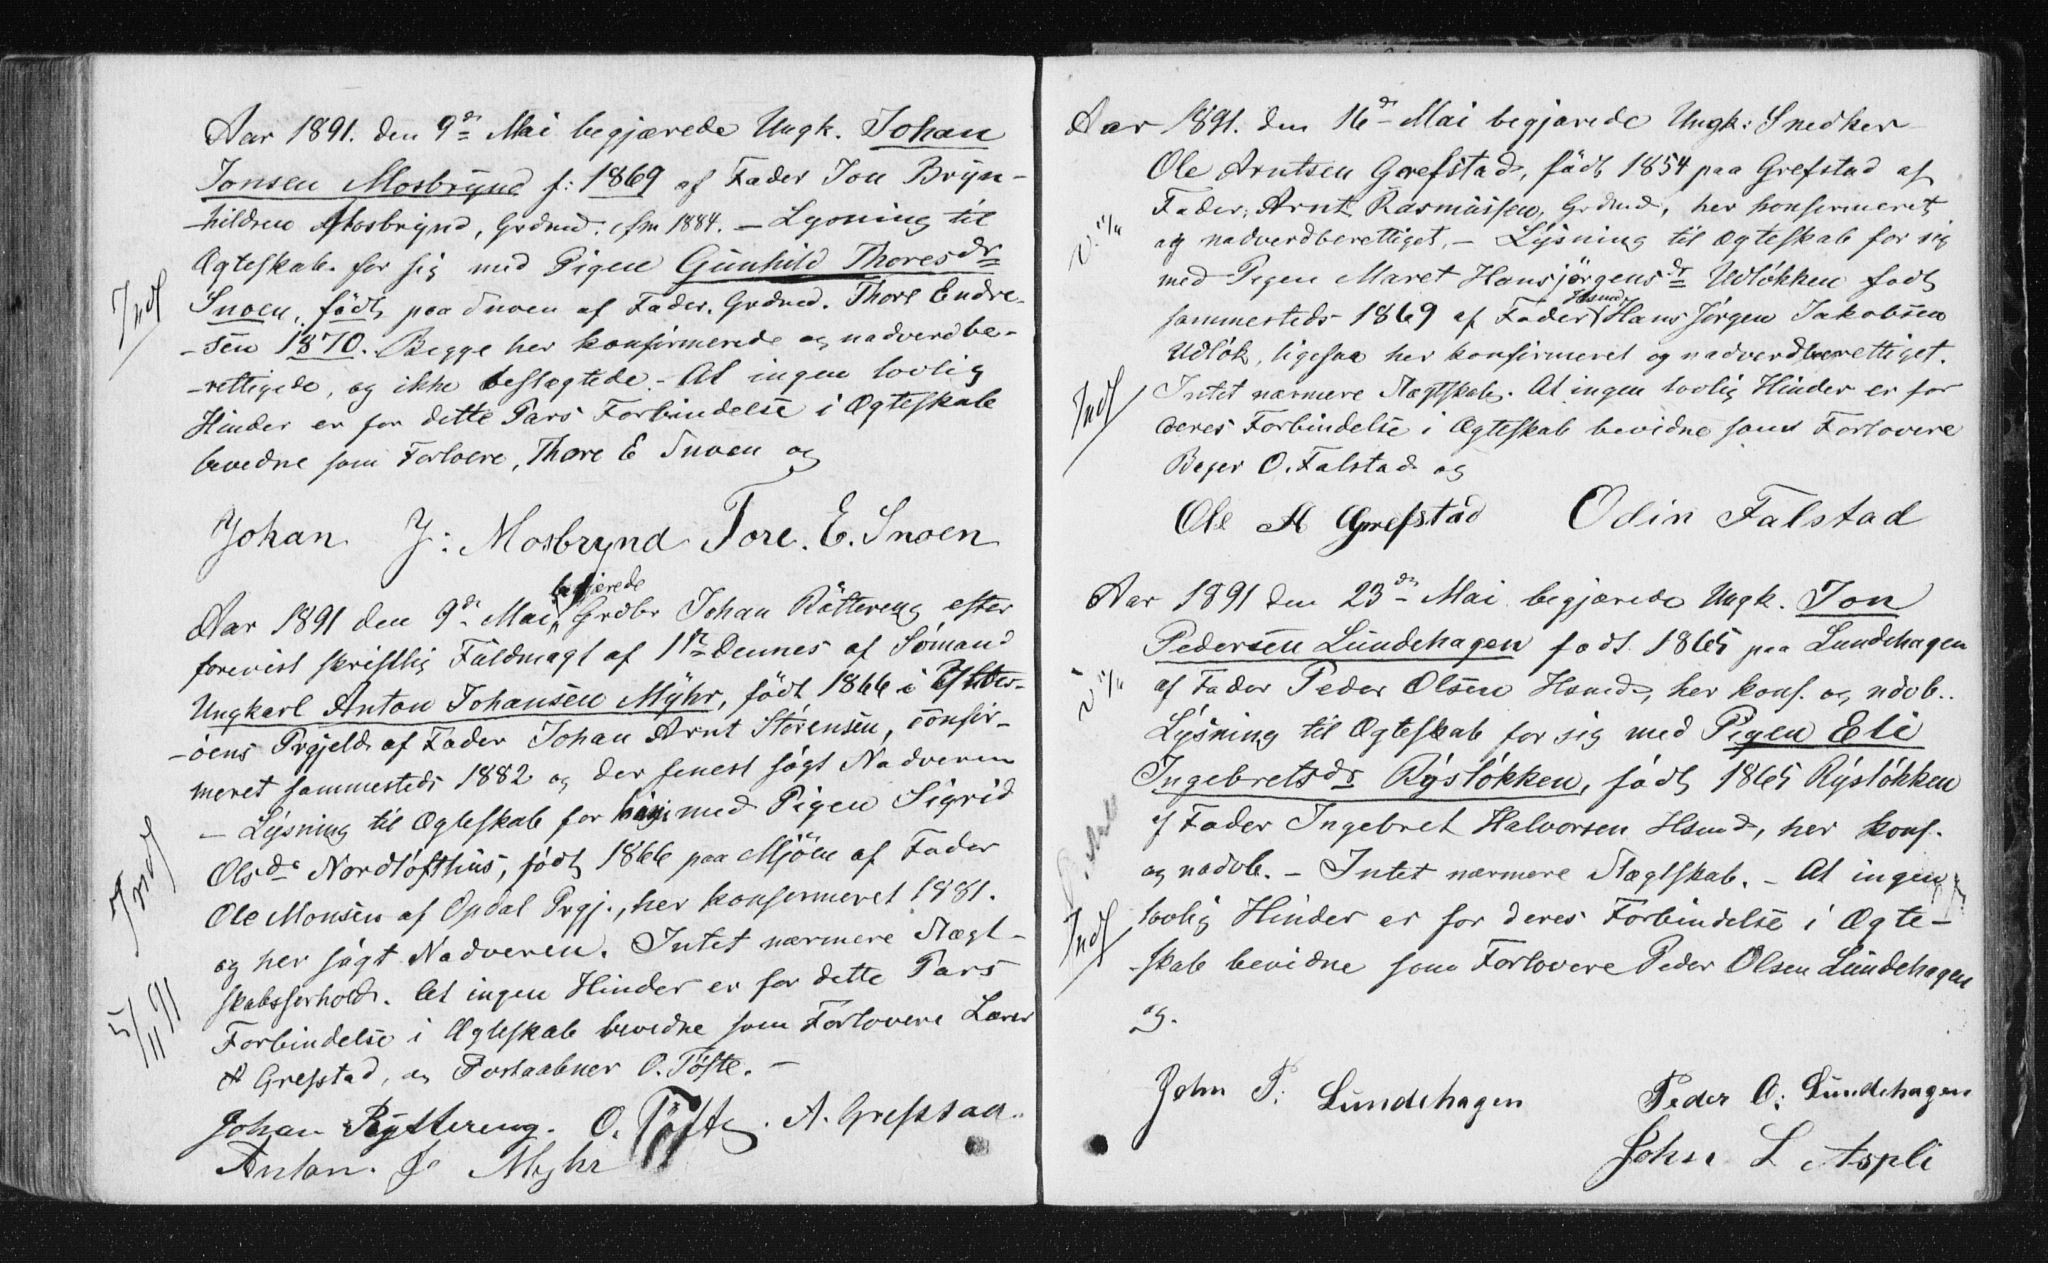 Aar 1891. den 9de Mai begjærede Ungk. Johan
Jonsen Mosbrynd f: 1869 af Fader Jon Bryn-
hildsen Mosbrynd, Grdmd. cfm 1884. — Lysning til
Ægteskab for sig med Pigen Gunhild Thoresdr
Snoen, född paa Snoen af Fader, Grdmd. Thore Endre-
-sen 1870. Begge her konfirmerede og nadverdbe-
-rettigede, og ikke beslægtede. - At ingen lovlig
Hinder er for dette Pars Forbindelse i Ægteskab
bevidne som Forlovere, Thore E Snoen og
Johan J: Mosbrynd Tore. E. Snoen
begjærede
Aar 1891 den 9de Mai, Grdbr Johan Röttereng efter
forevist skriftlig Fuldmagt af 1ste Dennes af Sømand
Ungkarl Anton Johansen Myhr, født 1866 i
-öens Prgjeld af Fader Johan Arnt Sörensen, confir-
meret sammesteds 1882 og der senest søgt Nadveren
— Lysning til Ægteskab for med Pigen Sigrid
Olsdr Nordløfthus, født 1866 paa Mjöen af Fader
Ole Monsen af Opdal Prgj., her konfirmeret 1881.
og her søgt Nadveren. Intet nærmere Slægt-
skabsforhold. At ingen Hinder er for dette Pars
Forbindelse i Ægteskab bevidne som Forlovere Lærer
A Grefstad, og Postaabner O. Töfte. —
Johan Ryttereng. O. Töfte. A. Grefstad.
Anton. J. Myhr
Indf
Indf
5/11 91
Aar 1891. den 16de Mai begjærede Ungk: Snedker
Ole Arntsen Grefstad, född 1854 paa Grefstad af
Fader, Arnt Rasmussen, Grdmd, her konfirmeret
og nadverdberettiget, — Lysning til Ægteskab for sig
med Pigen Maret Hansjørgensdr Udløkken født
Hsmd
sammesteds 1869 af Fader Hans Jørgen Jakobsen
Udløk, ligesaa her konfirmeret og nadverdberettiget.
Intet nærmere Slægtskab. At ingen lovlig Hinder er for
deres Forbindelse i Ægteskab bevidne som Forlovere
O. Falstad og
Ole A Grefstad Odin Falstad
Aar 1891 den 23de Mai begjærede Ungk. Jon
Pedersen Lundehagen født 1865 paa Lundehagen
af Fader Peder Olsen Hsmd, her konf. og ndvb..
Lysning til Ægteskab for sig med Pigen Eli
Ingebretsdr Rysløkken, født 1865 Rysløkken
af Fader Ingebret Halvorsen Hsmd, her konf.
og nadvb. — Intet nærmere Slægtskab. — At ingen
lovlig Hinder er for deres Forbindelse i Ægte-
-skab bevidne som Forlovere Peder Olsen Lundehagen
og.
John P: Lundehagen Peder O: Lundehagen
John L Aspli
Indf
Indf